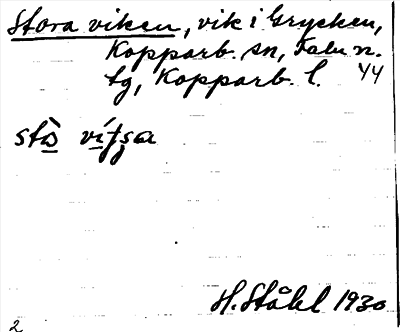 Stora viken, vik i Grycken,
Kopparb. sn, Falu n.
tg, Kopparb. l. 44
stò
H. Ståhl 1930
2